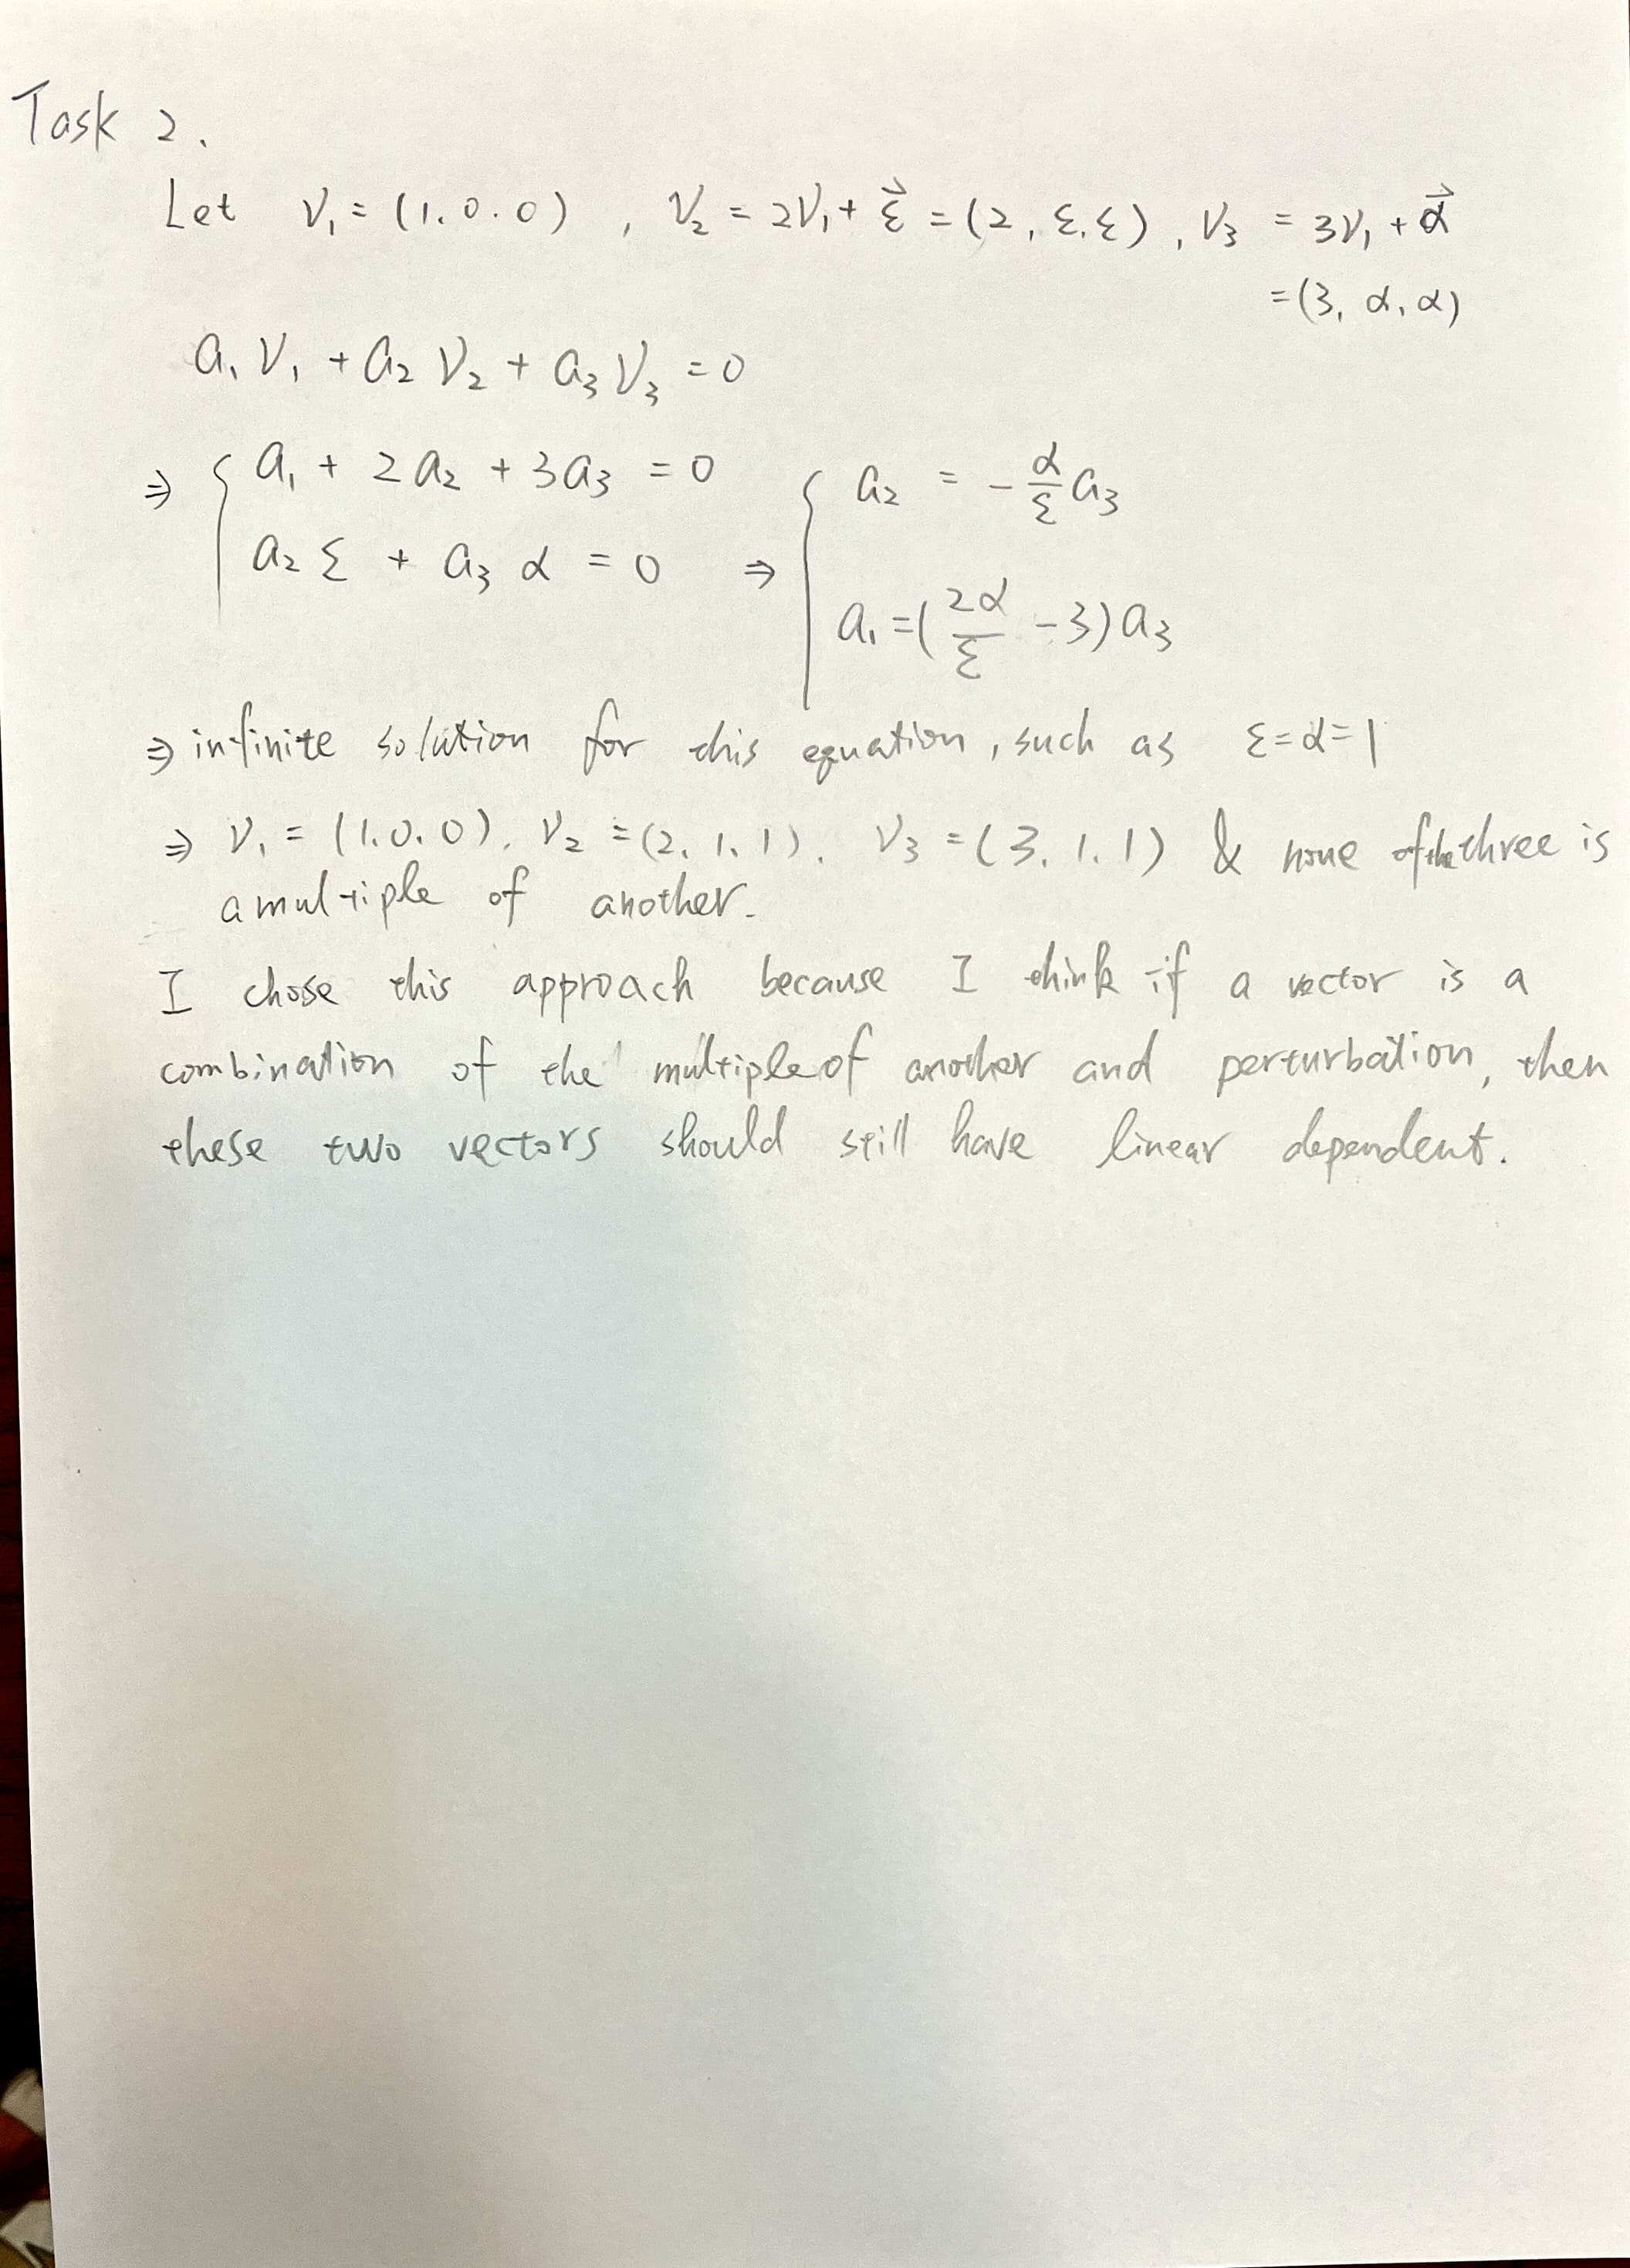 Task 2.
Let V₁ = (1.0.0), V₂ = 2V₁ + ε⃗ = (2, ε.ε), V₃ = 3V₁ + α⃗
=(3, α, α)
a₁V₁ + a₂V₂ + a₃V₃ = 0
⇒ { a₁ + 2a₂ + 3a₃ = 0 { a₂ = -α/ε a₃
a₂ε + a₃α = 0 ⇒ a₁ = (2α/ε - 3)a₃
⇒ infinite solution for this equation, such as ε=α=1
⇒ V₁ = (1.0.0). V₂ = (2. 1. 1). V₃ = (3. 1. 1) & none of the three is
a multiple of another.
I chose this approach because I think if a vector is a
combination of the multiple of another and perturbation, then
these two vectors should still have linear dependent.